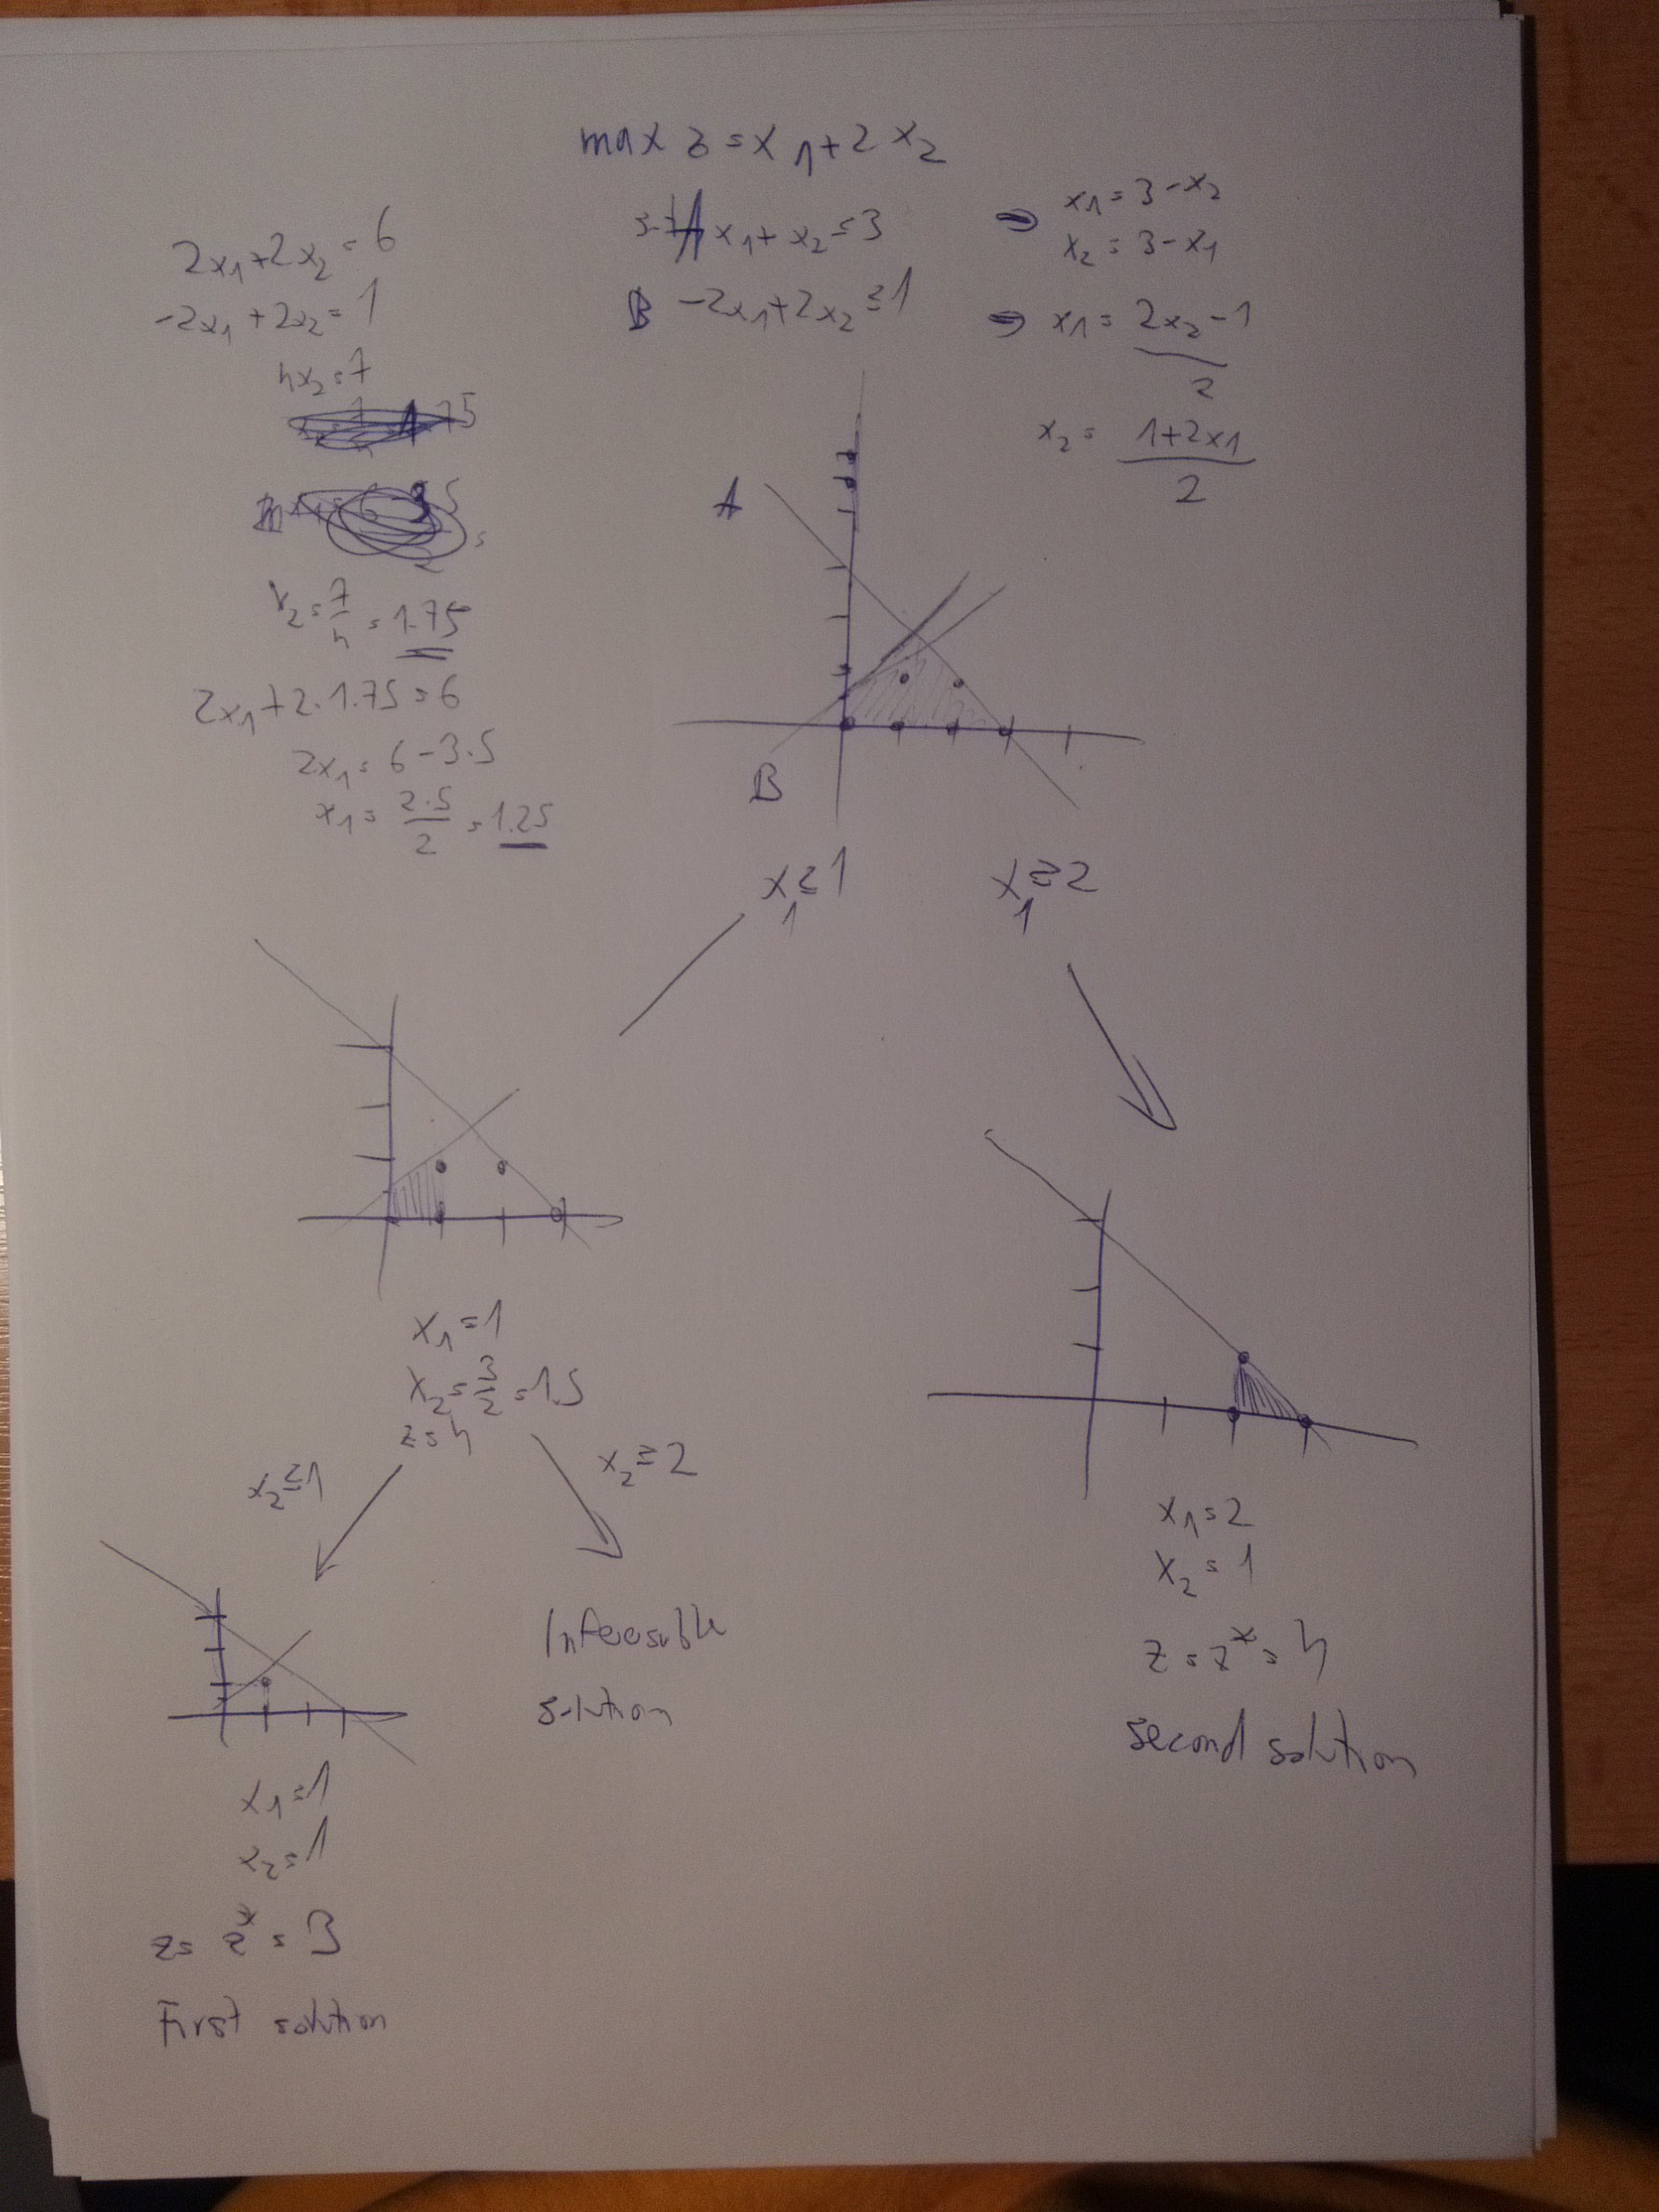 max z = x₁ + 2x₂
s.t. A x₁ + x₂ ≤ 3
⇒ x₁ = 3 - x₂
x₂ = 3 - x₁
B -2x₁ + 2x₂ ≤ 1
⇒ x₁ = (2x₂ - 1)/2
x₂ = (1 + 2x₁)/2
2x₁ + 2x₂ = 6
-2x₁ + 2x₂ = 1
4x₂ = 7
x₂ = 7/4 = 1.75
2x₁ + 2·1.75 = 6
2x₁ = 6 - 3.5
x₁ = 2.5/2 = 1.25
A
B
x₁ ≤ 1
x₁ ≥ 2
x₁ = 1
x₂ = 3/2 = 1.5
z = 4
x₂ ≤ 1
x₂ ≥ 2
Infeasible
solution
x₁ = 1
x₂ = 1
z = z* = 3
First solution
x₁ = 2
x₂ = 1
z = z* = 4
second solution